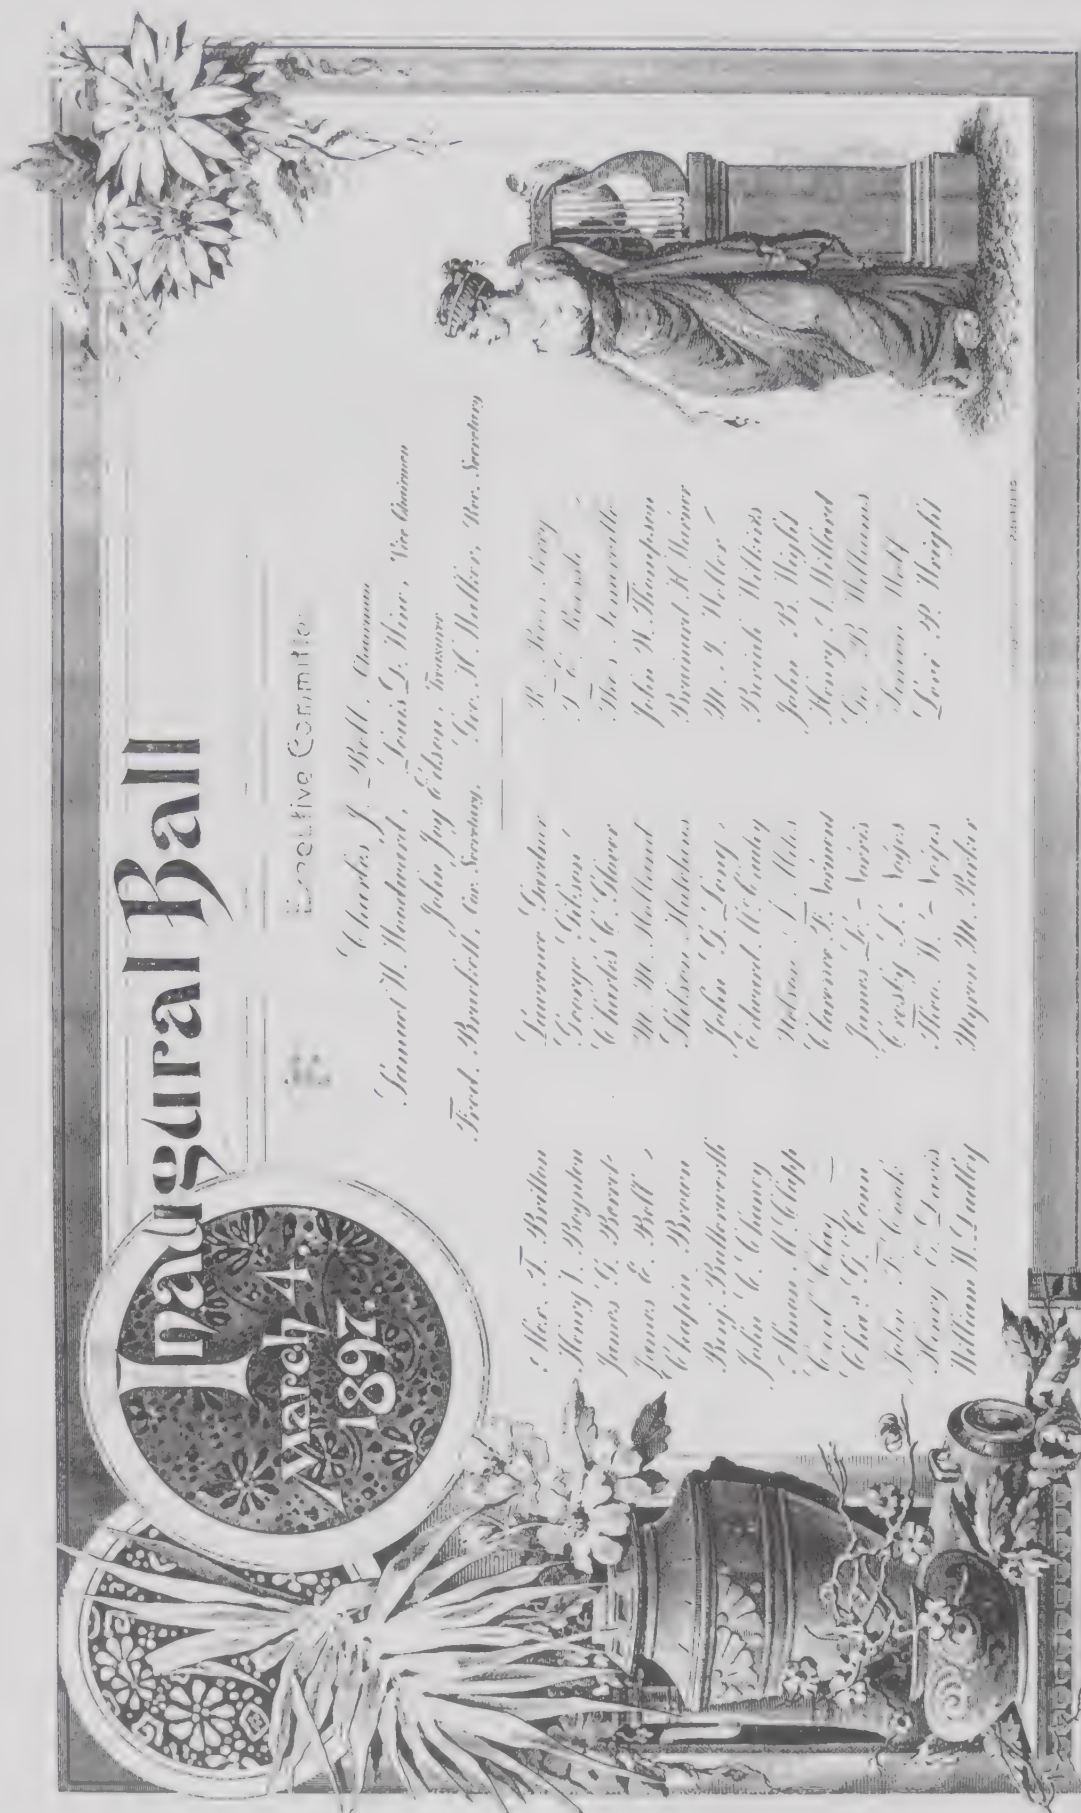 Inaugural Ball
March 4.
1897.
Executive Committee
Charles J. Bell, Chairman
Samuel W. Woodward, Louis D. Wine, Vice Chairmen
John Joy Edson, Treasurer
Fred. Brackett, Cor. Secretary, Geo. H. Walker, Rec. Secretary
Alex. T. Britton
Henry V. Boynton
James G. Berret
James E. Bell
Chapin Brown
Benj. Butterworth
John C. Chaney
A. Clapp
Cecil Clay
Chas. G. Conn
John T.
Henry E. Davis
William W. Dudley
Lawrence Gardner
George Gibson
Charles C. Glover
W. Holland
Stilson Hutchins
John G. Long
Edward McCauley
Nelson A. Miles
Clarence F. Norment
James L. Norris
Crosby S. Noyes
Theo. W. Noyes
Myron M. Parker
R. Ross Perry
T. E. Roessle
Thos. Somerville
John W. Thompson
Brainard H. Warner
M. I. Weller
Beriah Wilkins
John B. Wight
Henry A. Willard
Geo. B. Williams
Simon Wolf
Levi P. Wright